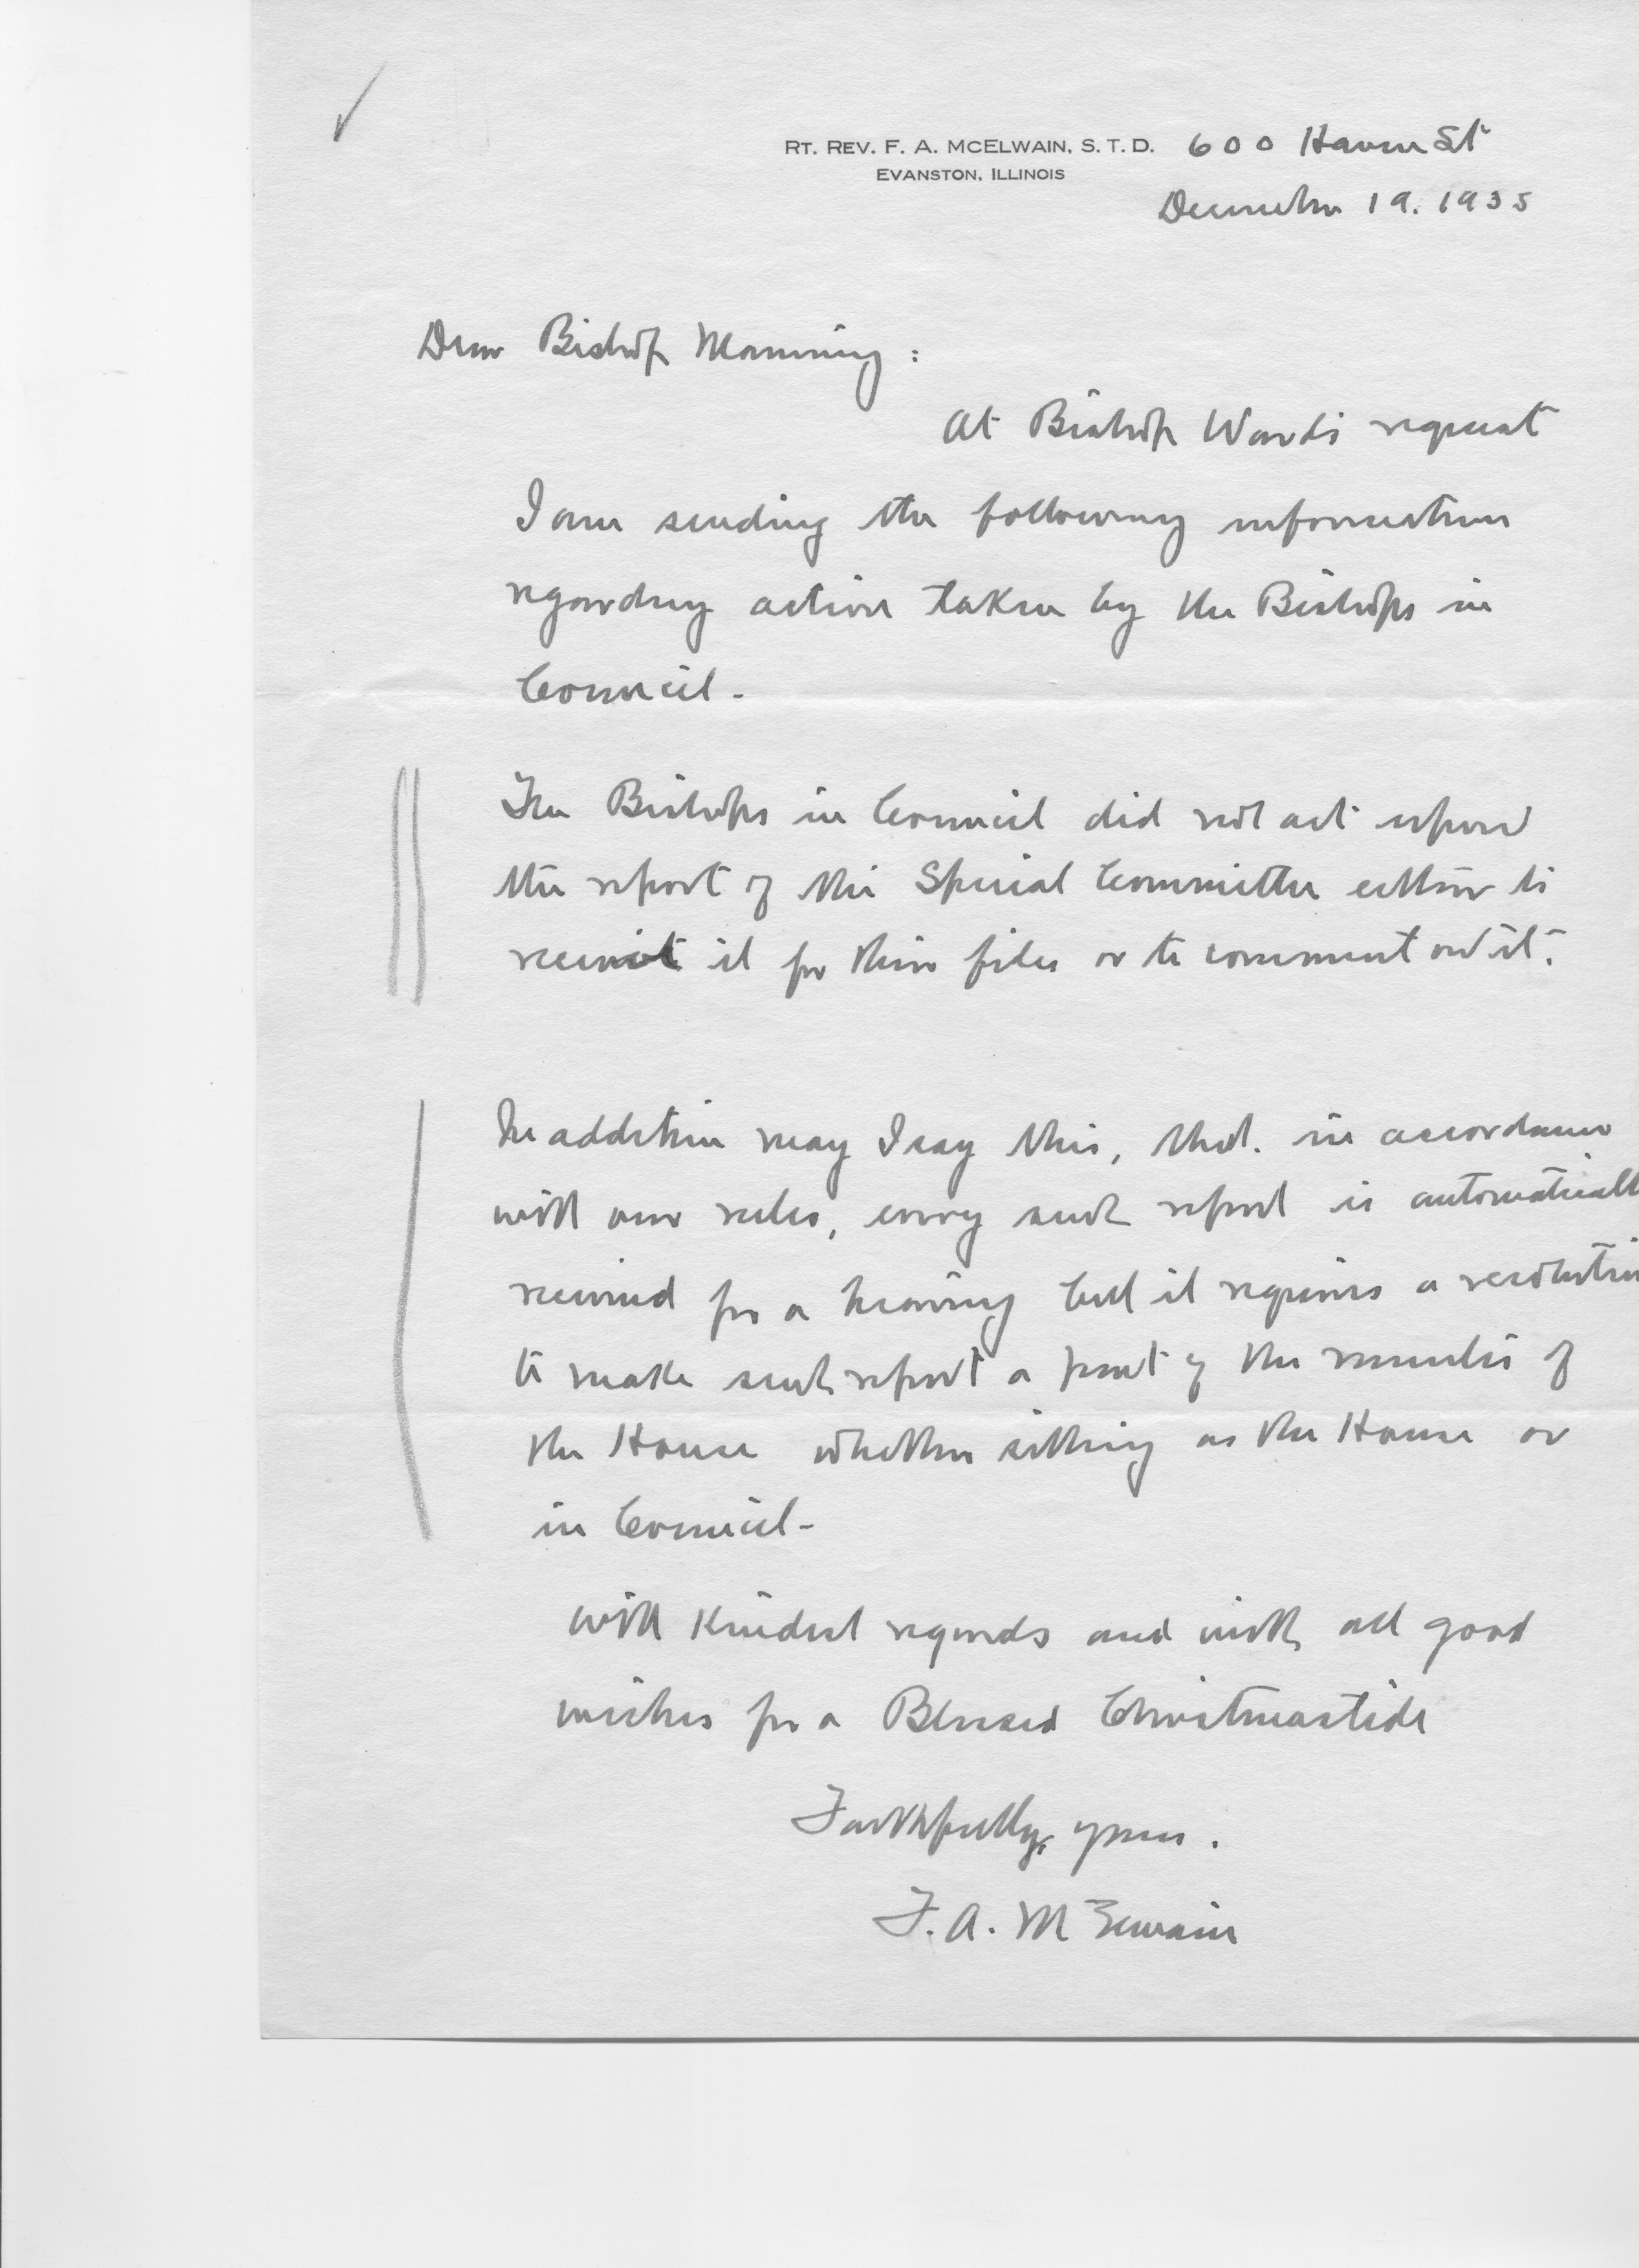 RT. REV. F. A. MCELWAIN, S. T. D. 600 Haven St
EVANSTON, ILLINOIS
December 19. 1935
Dear Bishop Manning:
At Bishop Ward's request
I am sending the following information
regarding action taken by the Bishops in
Council-
The Bishops in Council did not act upon
the report of the Special Committee either to
receive it for their files or to comment on it.
In addition may I say this, that. in accordance
with our rules, every such report is automaticall
received for a hearing but it requires a resolution
to make such report a part of the minutes of
the House whether sitting as the House or
in Council-
With Kindest regards and with all good
wishes for a Blessed Christmastide
Faithfully yours.
F. A. McElwain